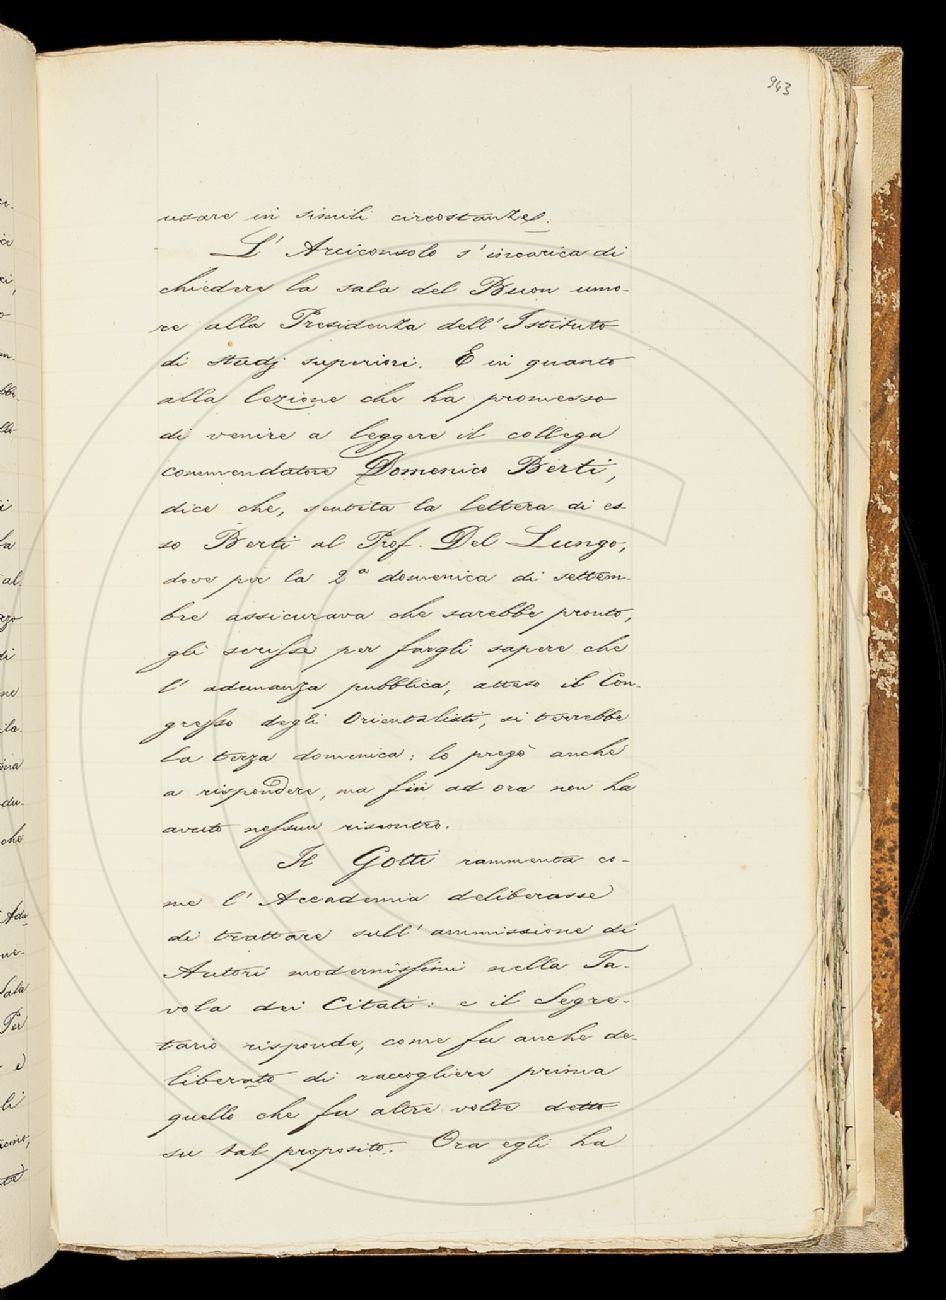 943
usare in simili circostanze.
L' Arciconsolo s'incarica di
chiedere la sala del Buon umo-
re alla Presidenza dell'Istituto
di studj superiori. E in quanto
alla lezione che ha promesso
di venire a leggere il collega
commendatore Domenico Berti,
dice che, sentita la lettera di es-
so Berti al Prof. Del Lungo,
dove per la 2ª domenica di settem-
bre assicurava che sarebbe pronto,
gli scrisse per fargli sapere che
l' adunanza pubblica, atteso il Con-
gresso degli Orientalisti, si terrebbe
la terza domenica: lo pregò anche
a rispondere, ma fin ad ora non ha
avuto nessun riscontro.
Il Gotti rammenta co-
me l' Accademia deliberasse
di trattare sull' ammissione di
Autori modernissimi nella Ta-
vola dei Citati: e il Segre-
tario risponde, come fu anche de-
liberato di raccogliere prima
quello che fu altre volte detto
su tal proposito. Ora egli ha